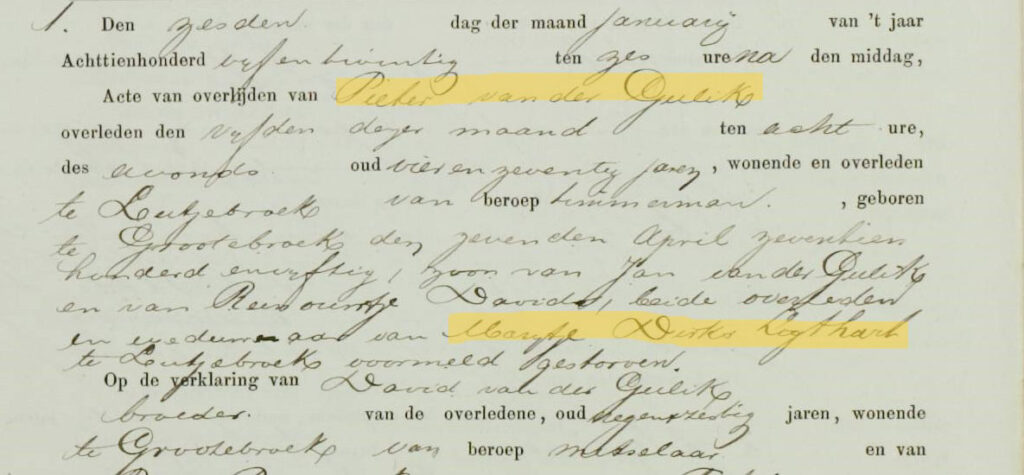 1. Den zesden dag der maand january van 't jaar
Achttienhonderd vyfentwintig ten zes ure na den middag,
Acte van overlijden van Pieter van der Gulik
overleden den vyfden dezer maand ten acht ure,
des avonds oud vierenzeventig jaren, wonende en overleden
te Lutjebroek van beroep timmerman. , geboren
te Grootebroek den zevenden April zeventien
honderd envyftig, zoon van Jan van der Gulik
en van Reinouwtje Davids, beide overleden
en weduwenaar van Marytje Dirks Ligthart
te Lutjebroek voormeld gestorven.
Op de verklaring van David van der Gulik
broeder. van de overledene, oud negenenzestig jaren, wonende
te Grootebroek van beroep metselaar en van